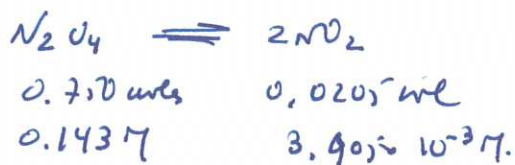 N₂O₄ ⇌ 2NO₂
0.750 moles 0.0205 mol
0.143 M 3.905 × 10⁻³ M.